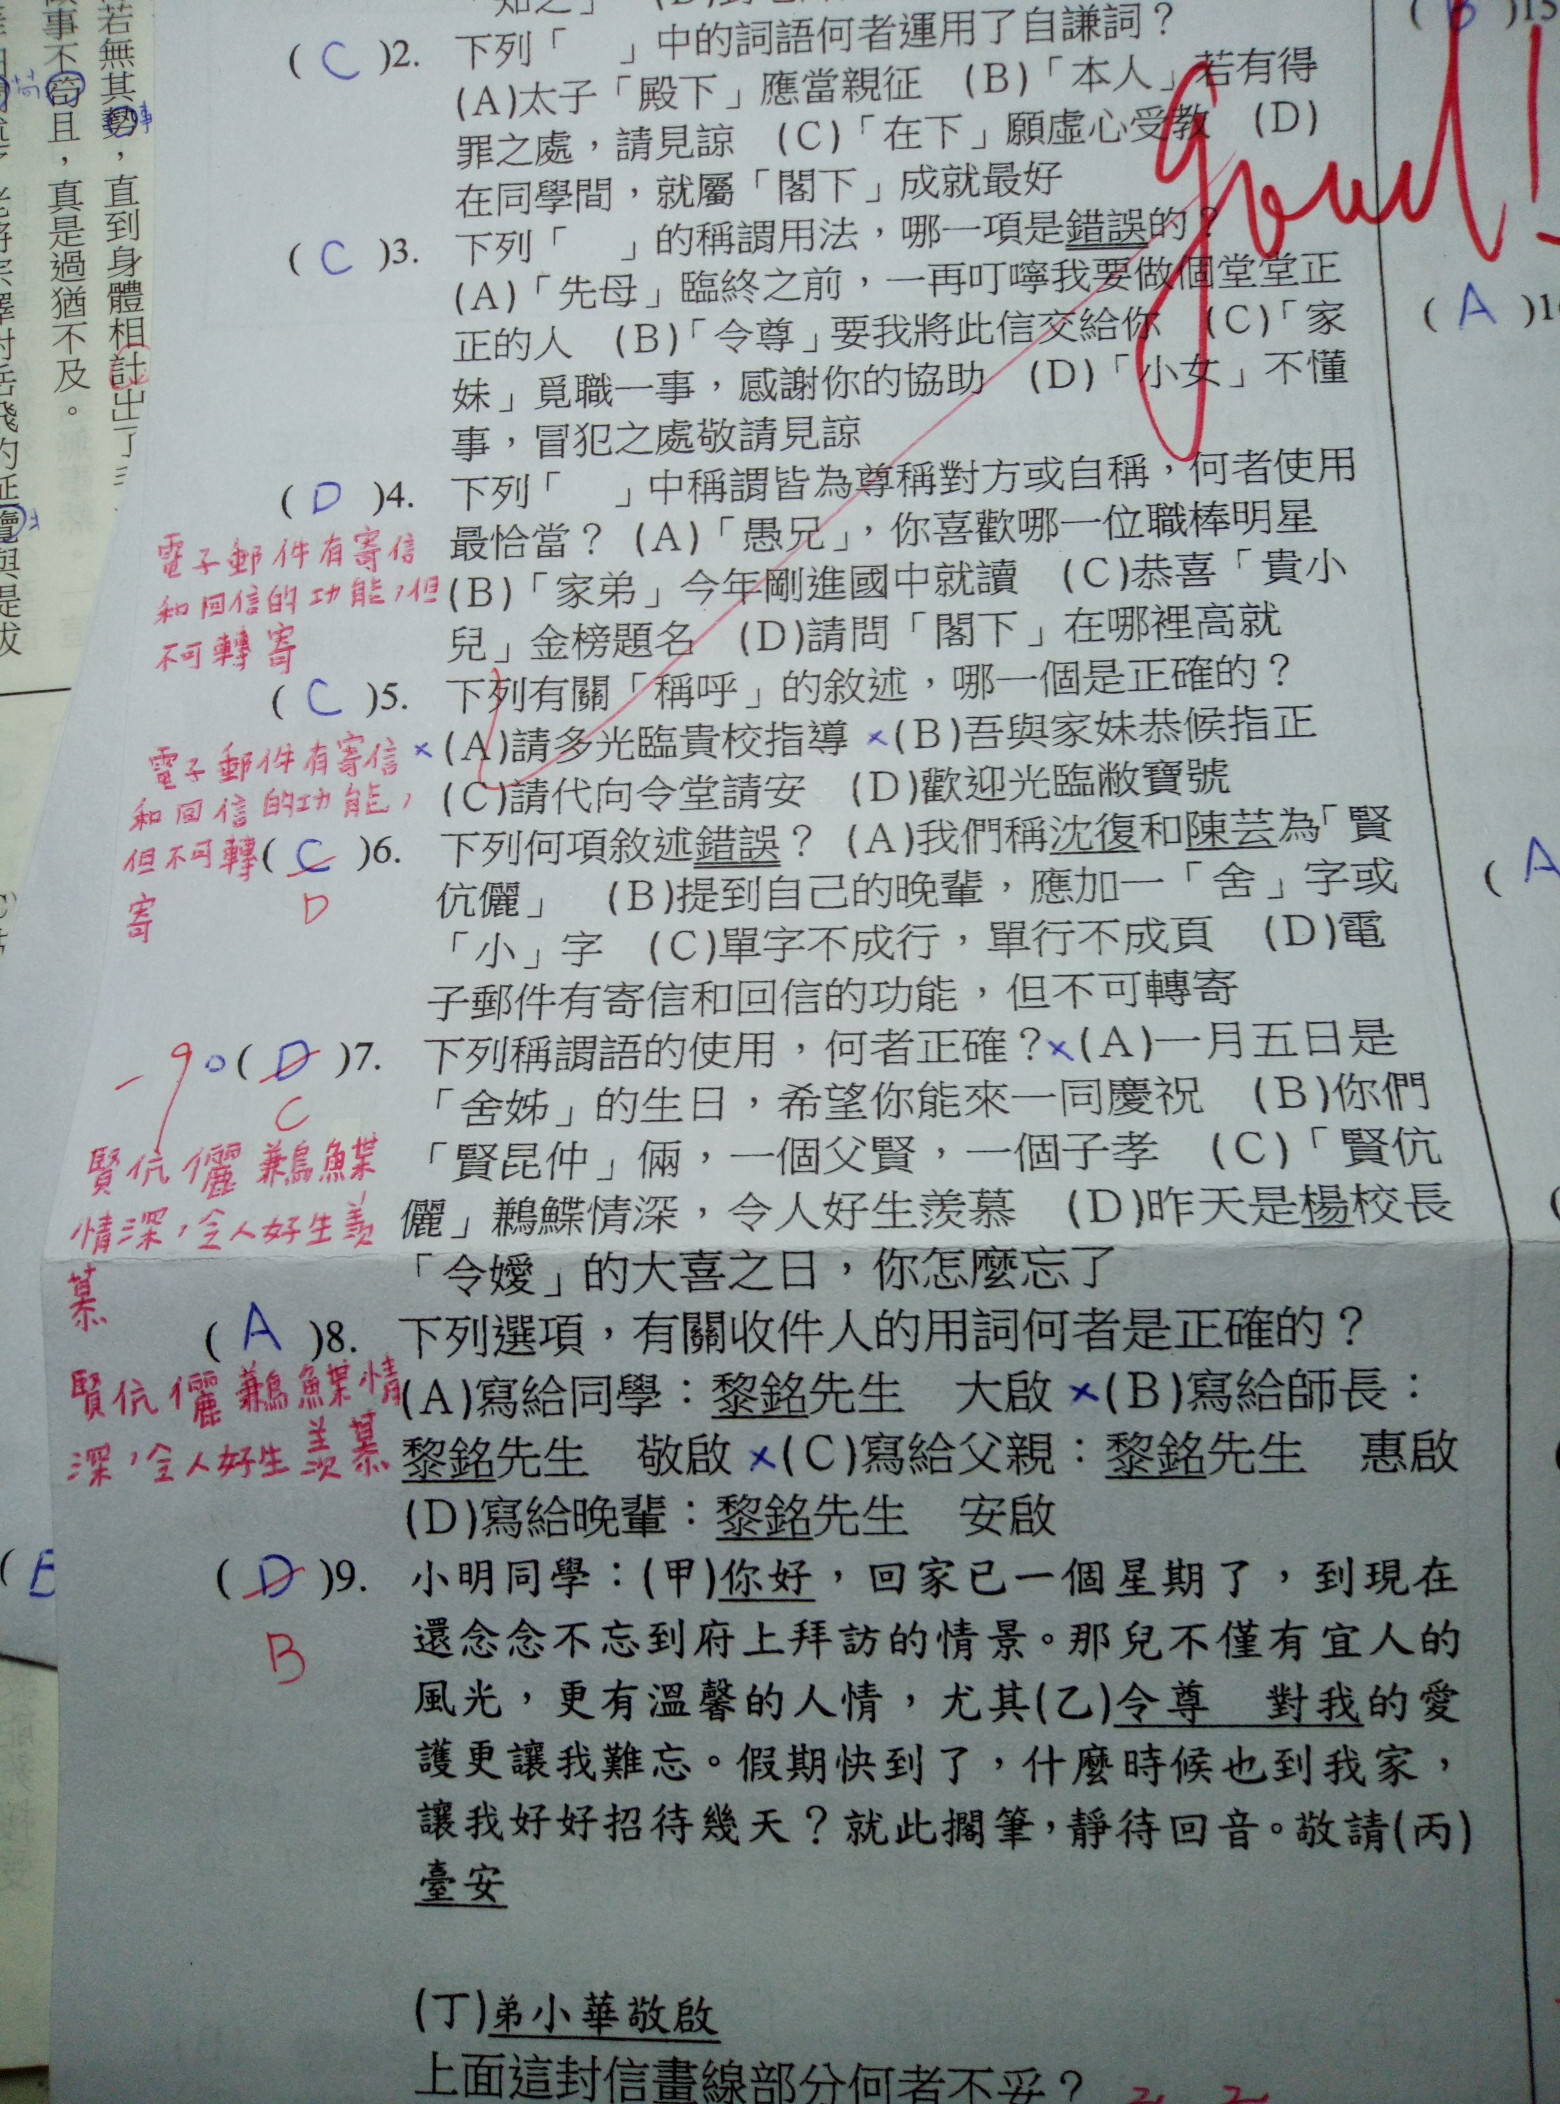 (C)2. 下列「　」中的詞語何者運用了自謙詞？
(A)太子「殿下」應當親征　(B)「本人」若有得
罪之處，請見諒　(C)「在下」願虛心受教　(D)
在同學間，就屬「閣下」成就最好
(C)3. 下列「　」的稱謂用法，哪一項是錯誤的？
(A)「先母」臨終之前，一再叮嚀我要做個堂堂正
正的人　(B)「令尊」要我將此信交給你　(C)「家
妹」覓職一事，感謝你的協助　(D)「小女」不懂
事，冒犯之處敬請見諒
(D)4. 下列「　」中稱謂皆為尊稱對方或自稱，何者使用
最恰當？(A)「愚兄」，你喜歡哪一位職棒明星
(B)「家弟」今年剛進國中就讀　(C)恭喜「貴小
兒」金榜題名　(D)請問「閣下」在哪裡高就
電子郵件有寄信
和回信的功能，但
不可轉寄
(C)5. 下列有關「稱呼」的敘述，哪一個是正確的？
×(A)請多光臨貴校指導 ×(B)吾與家妹恭候指正
(C)請代向令堂請安　(D)歡迎光臨敝寶號
電子郵件有寄信
和回信的功能，
但不可轉
寄
(C)6. 下列何項敘述錯誤？(A)我們稱沈復和陳芸為「賢
D
伉儷」　(B)提到自己的晚輩，應加一「舍」字或
「小」字　(C)單字不成行，單行不成頁　(D)電
子郵件有寄信和回信的功能，但不可轉寄
-9
(D)7. 下列稱謂語的使用，何者正確？×(A)一月五日是
C
「舍姊」的生日，希望你能來一同慶祝　(B)你們
「賢昆仲」倆，一個父賢，一個子孝　(C)「賢伉
儷」鶼鰈情深，令人好生羨慕　(D)昨天是楊校長
「令嬡」的大喜之日，你怎麼忘了
賢伉儷鶼鰈
情深，令人好生羨
慕
(A)8. 下列選項，有關收件人的用詞何者是正確的？
(A)寫給同學：黎銘先生　大啟 ×(B)寫給師長：
黎銘先生　敬啟 ×(C)寫給父親：黎銘先生　惠啟
(D)寫給晚輩：黎銘先生　安啟
賢伉儷鶼鰈情
深，令人好生羨慕
(D)9. 小明同學：(甲)你好，回家已一個星期了，到現在
B
還念念不忘到府上拜訪的情景。那兒不僅有宜人的
風光，更有溫馨的人情，尤其(乙)令尊　對我的愛
護更讓我難忘。假期快到了，什麼時候也到我家，
讓我好好招待幾天？就此擱筆，靜待回音。敬請(丙)
臺安
(丁)弟小華敬啟
上面這封信畫線部分何者不妥？
good!
若無其勢，直到身體相討出了
事不苟且，真是過猶不及。
(B)15
(A)1
(A